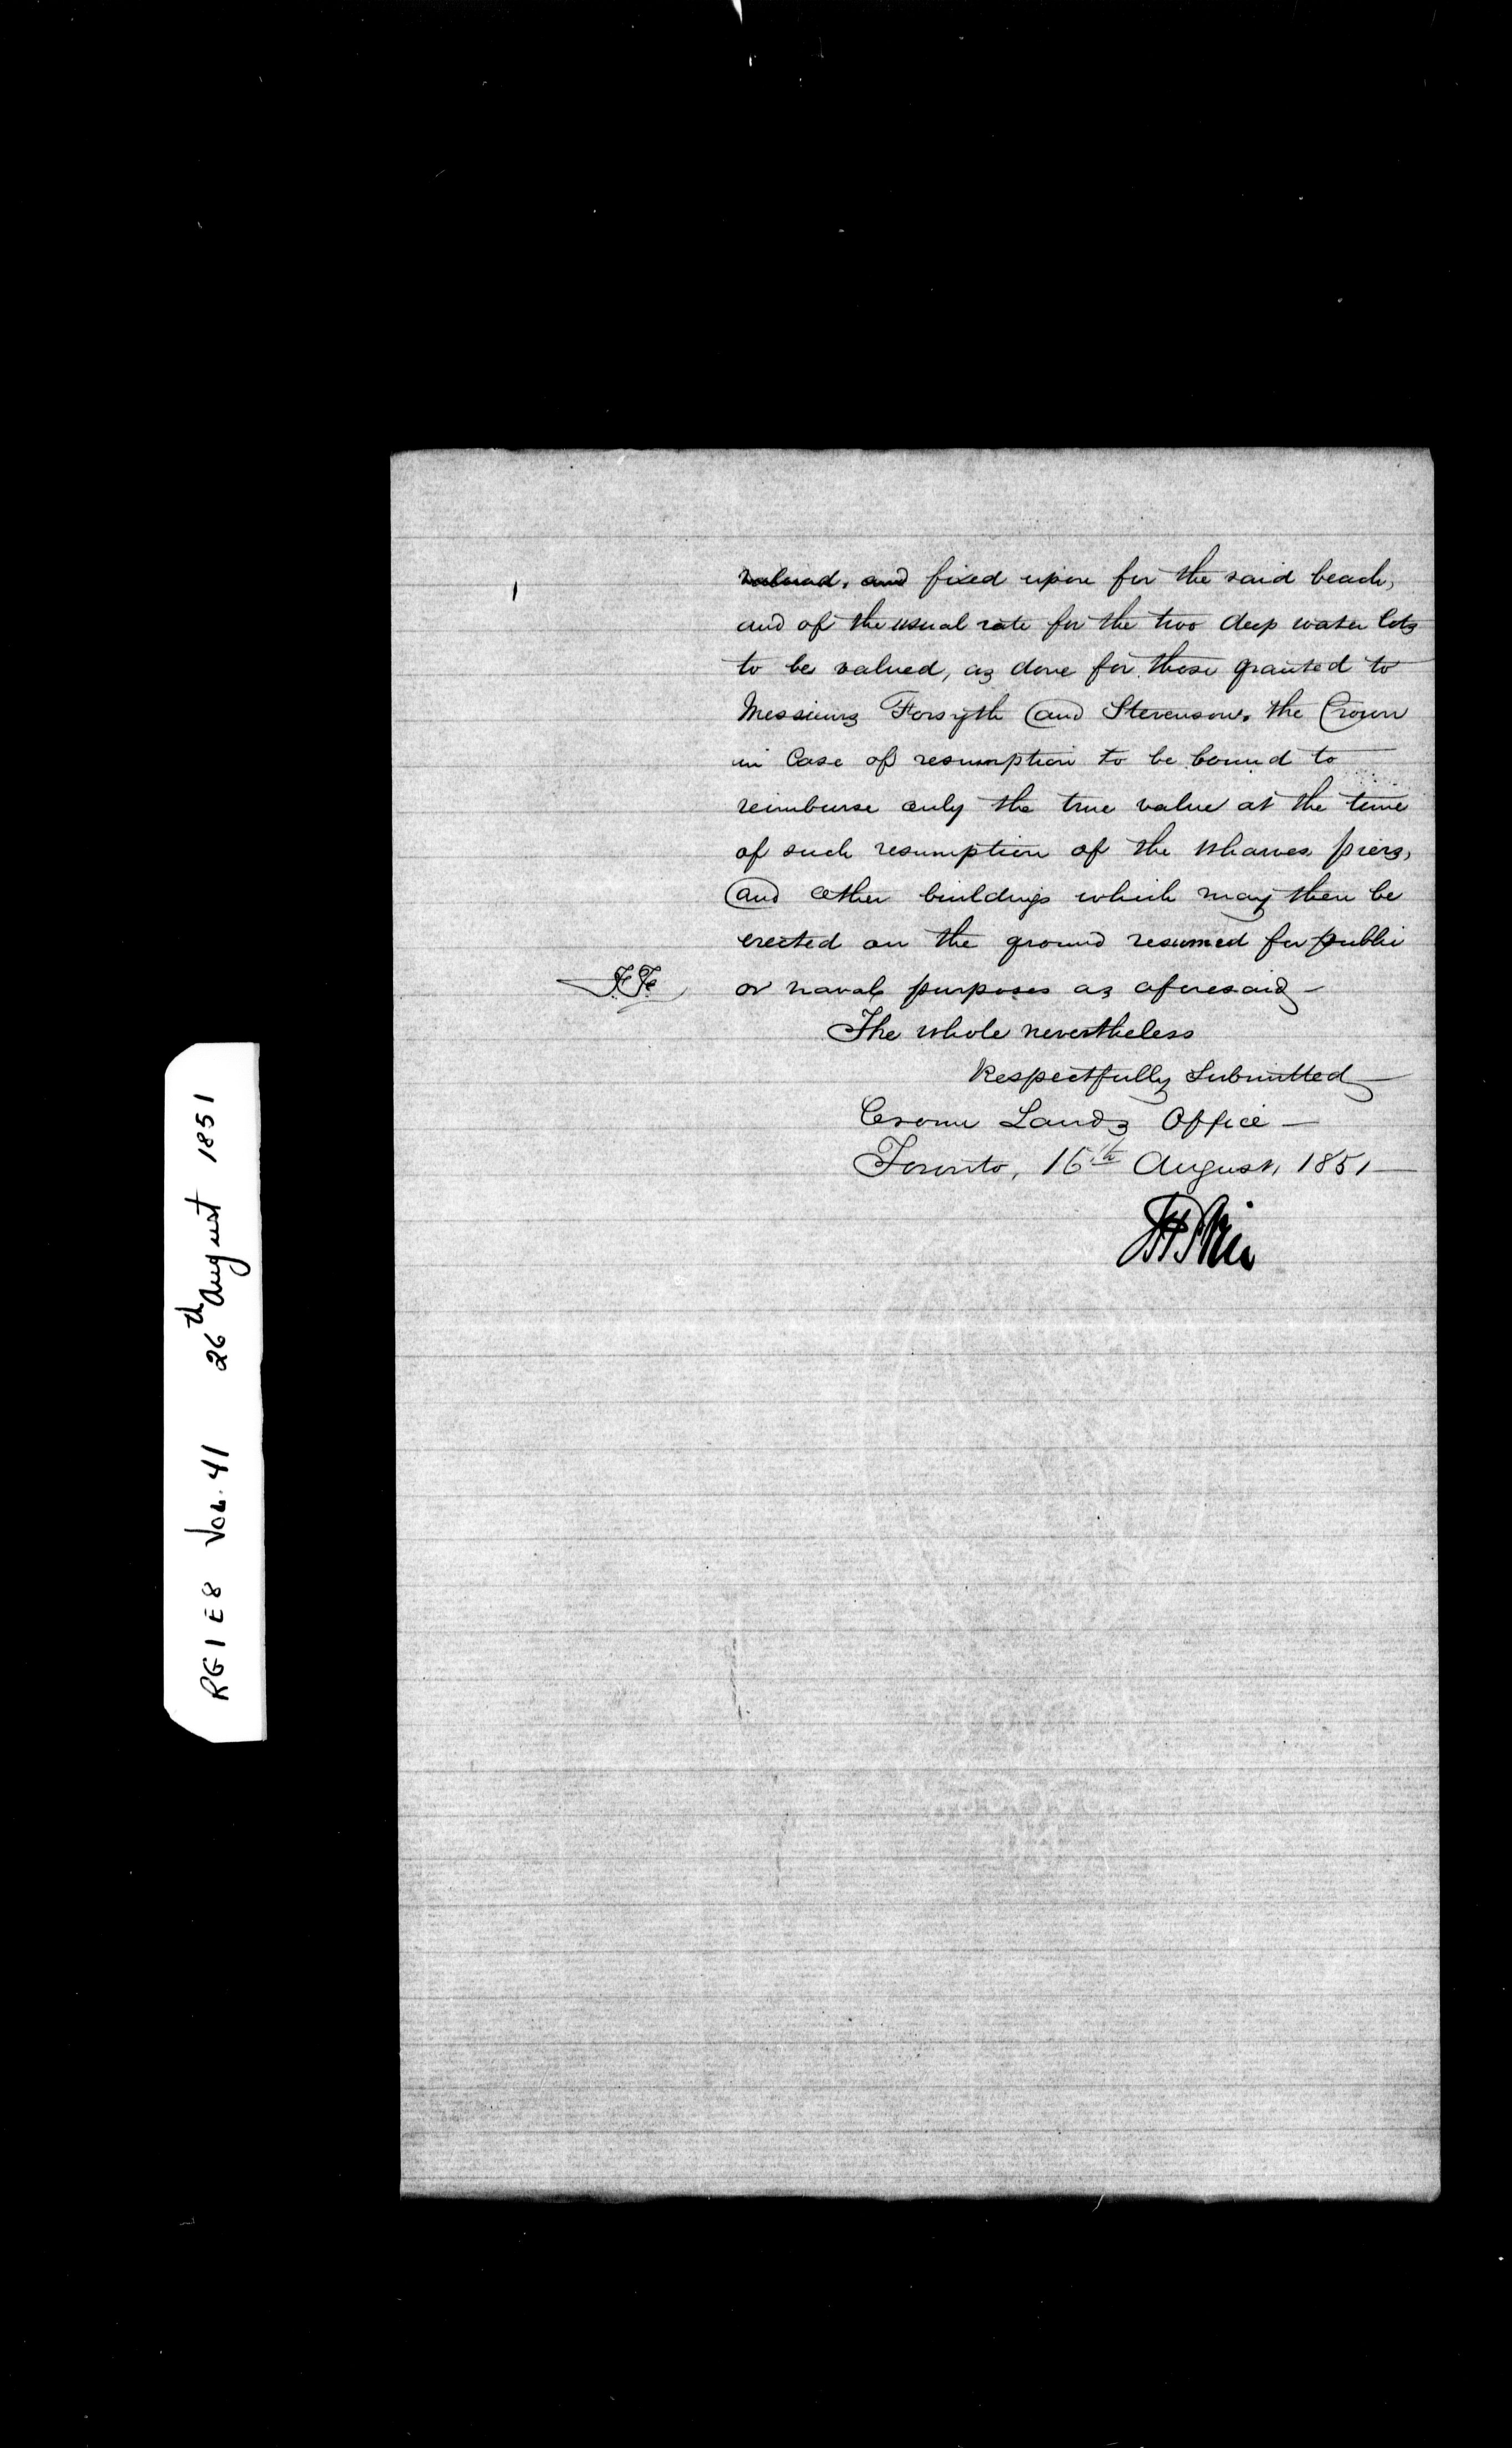 valued, and fixed upon for the said beach,
and of the usual rate for the two deep water lots
to be valued, as done for those granted to
Messieurs Forsyth and Stevenson. the Crown
in Case of resumption to be bound to
reimburse only the true value at the time
of such resumption of the wharves, piers,
and other buildings which may then be
erected on the ground resumed for public
or naval purposes as aforesaid —
The whole nevertheless
Respectfully Submitted
Crown Lands Office —
Toronto, 16th August, 1851 —
RG1 E8 Vol. 41 26th August 1851